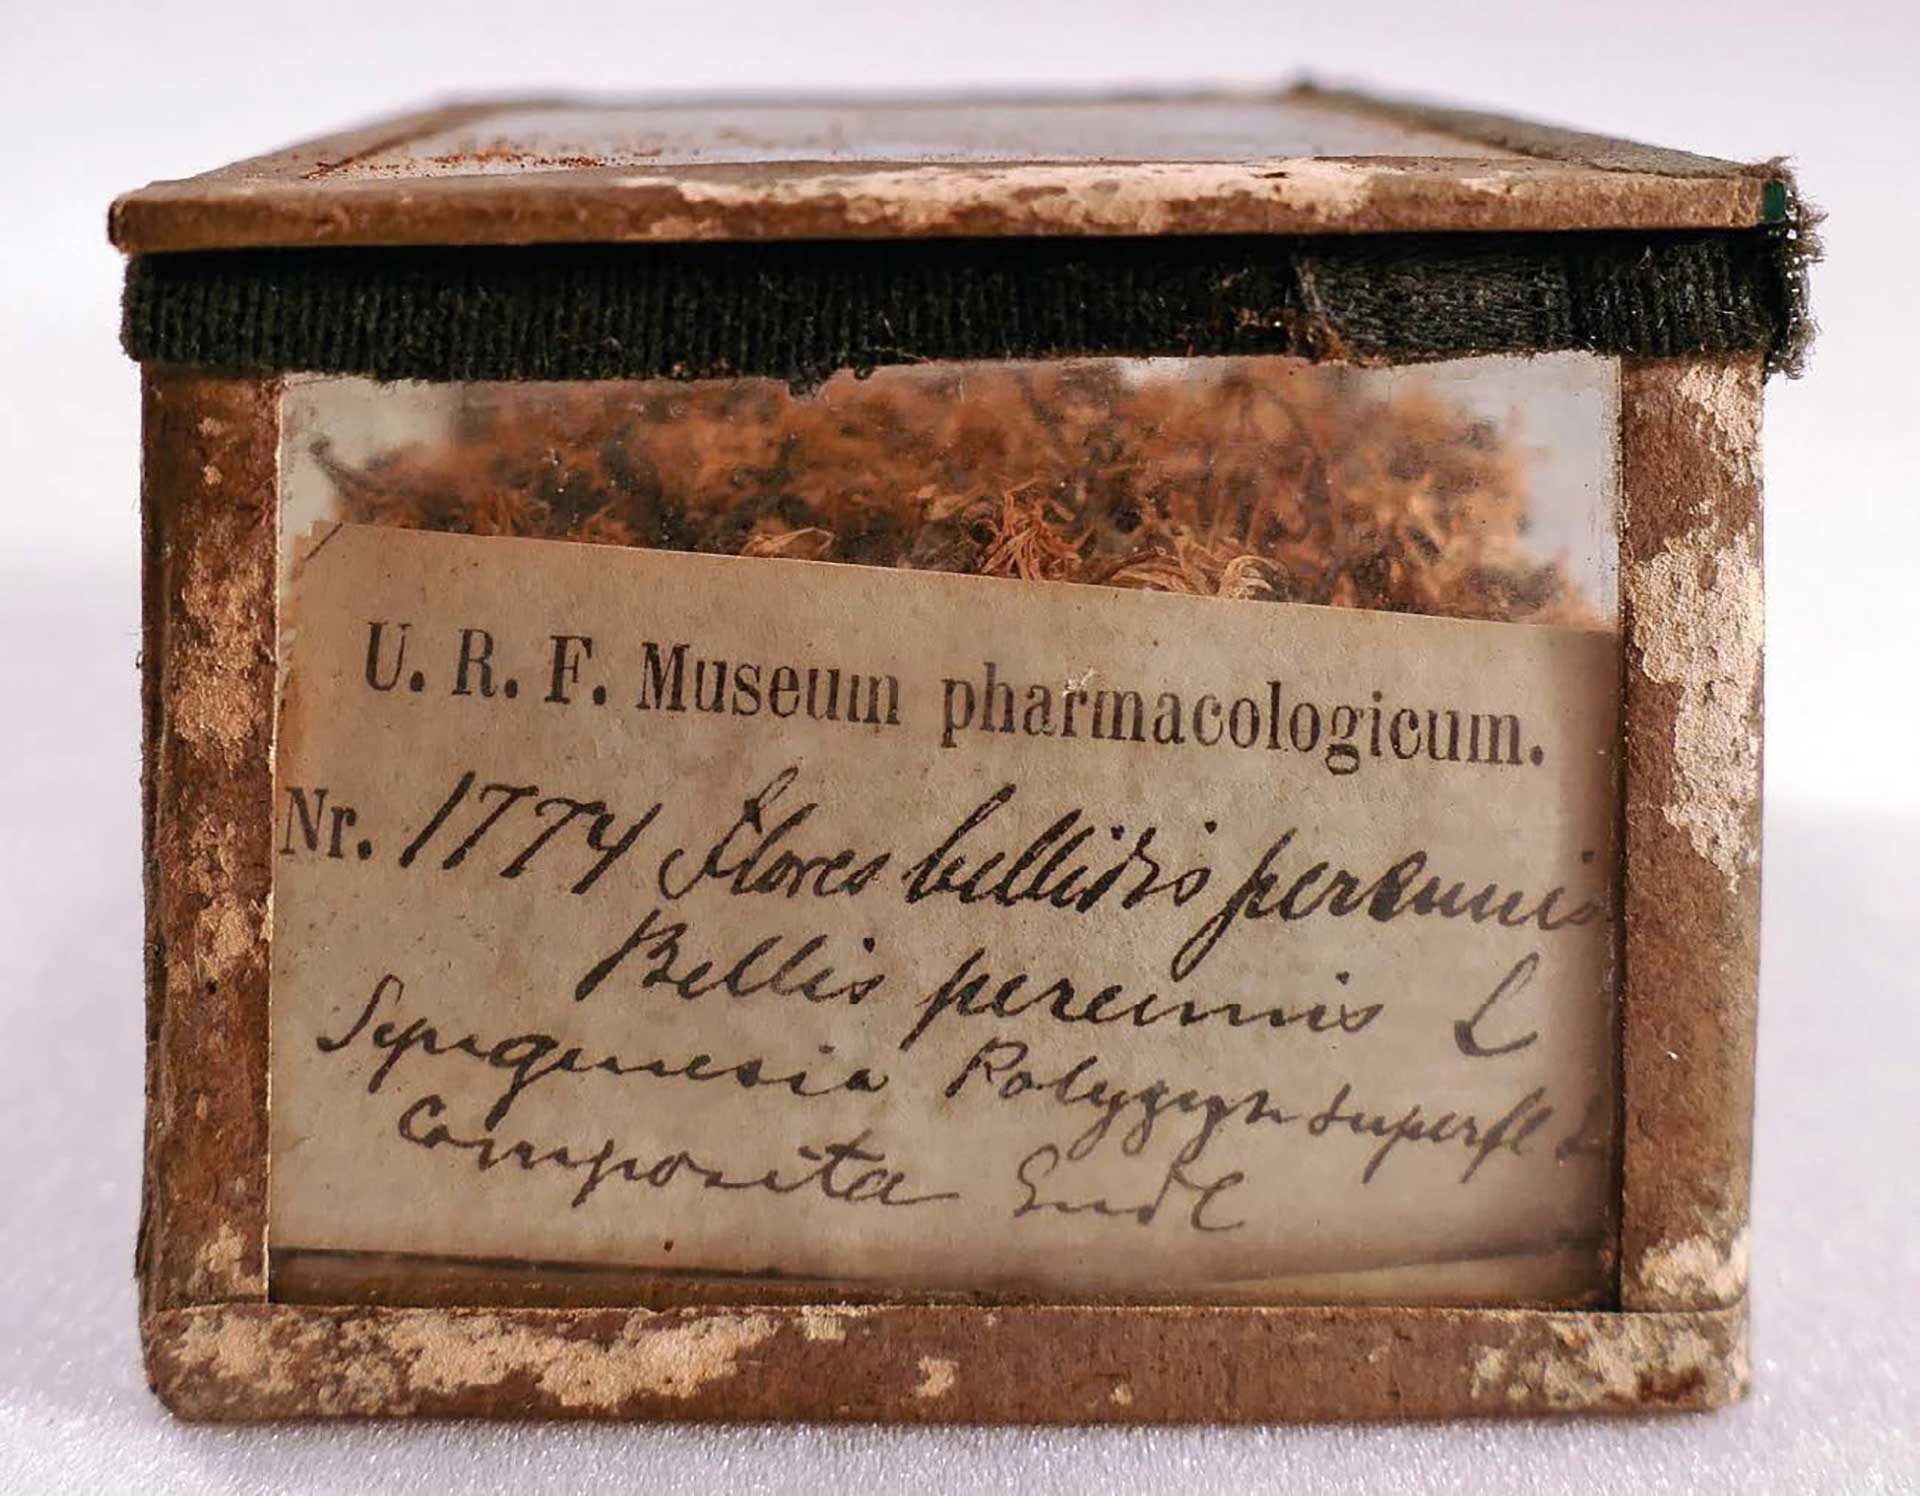 U. R. F. Museum pharmacologicum.
Nr. 1774 Flores bellidis perennis
Bellis perennis L
Syngenesia Polygyn superfl L
Composita Endl